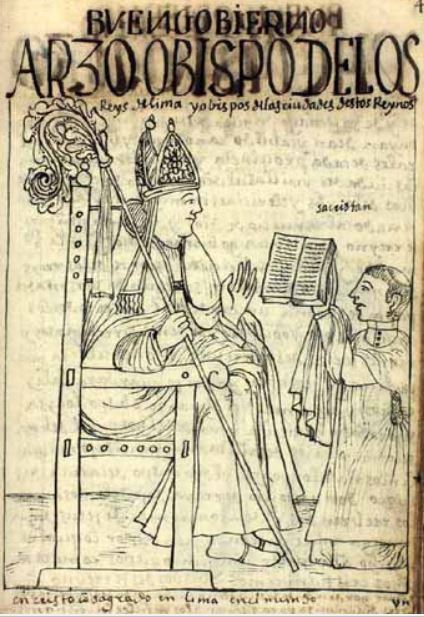 4
BVENGOBIERNO
ARZOOBISPODELOS
Reys de lima y obispos de las ciudades destos Reynos
sacristan
en cristo cõsagrado en lima en el mundo
yn